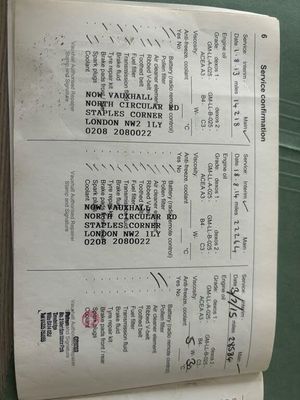 6 Service confirmation
Service: Interim Main ✓
Date 1.8.13 miles 14218
Engine oil
Grade: dexos 1 dexos 2
GM-LL-A-025
GM-LL-B-025
ACEA A3 B4 C3
Viscosity: W-
Anti-freeze, coolant °C
Yes No
Battery (radio remote control)
Pollen filter
Air cleaner element
Ribbed V-belt
Toothed belt
Fuel filter
Transmission fluid
Brake fluid
Tyre repair kit
Brake pads front / rear
Spark plugs
Coolant
NOW VAUXHALL
NORTH CIRCULAR RD
STAPLES CORNER
LONDON NW2 1LY
0208 2080022
Vauxhall Authorised Repairer
Stamp and Signature
Service: Interim Main
Date 18.8.14 miles 22264
Engine oil
Grade: dexos 1 dexos 2
GM-LL-A-025
GM-LL-B-025
ACEA A3 B4 C3
Viscosity: W-
Anti-freeze, coolant °C
Yes No
Battery (radio remote control)
Pollen filter
Air cleaner element
Ribbed V-belt
Toothed belt
Fuel filter
Transmission fluid
Brake fluid
Tyre repair kit
Brake pads front / rear
Spark plugs
Coolant
NOW VAUXHALL
NORTH CIRCULAR RD
STAPLES CORNER
LONDON NW2 1LY
0208 2080022
Vauxhall Authorised Repairer
Stamp and Signature
Service: Interim Main
Date /7/15 miles
Engine oil
Grade: dexos 1 dexos 2
GM-LL-A-025
GM-LL-B-025
ACEA A3 B4 C3
Viscosity: 5 W- 30
Anti-freeze, coolant °C
Yes No
Battery (radio remote control)
Pollen filter
Air cleaner element
Ribbed V-belt
Toothed belt
Fuel filter
Transmission fluid
Brake fluid
Tyre repair kit
Brake pads front / rear
Spark plugs
Coolant
Vauxhall Authorised Repairer